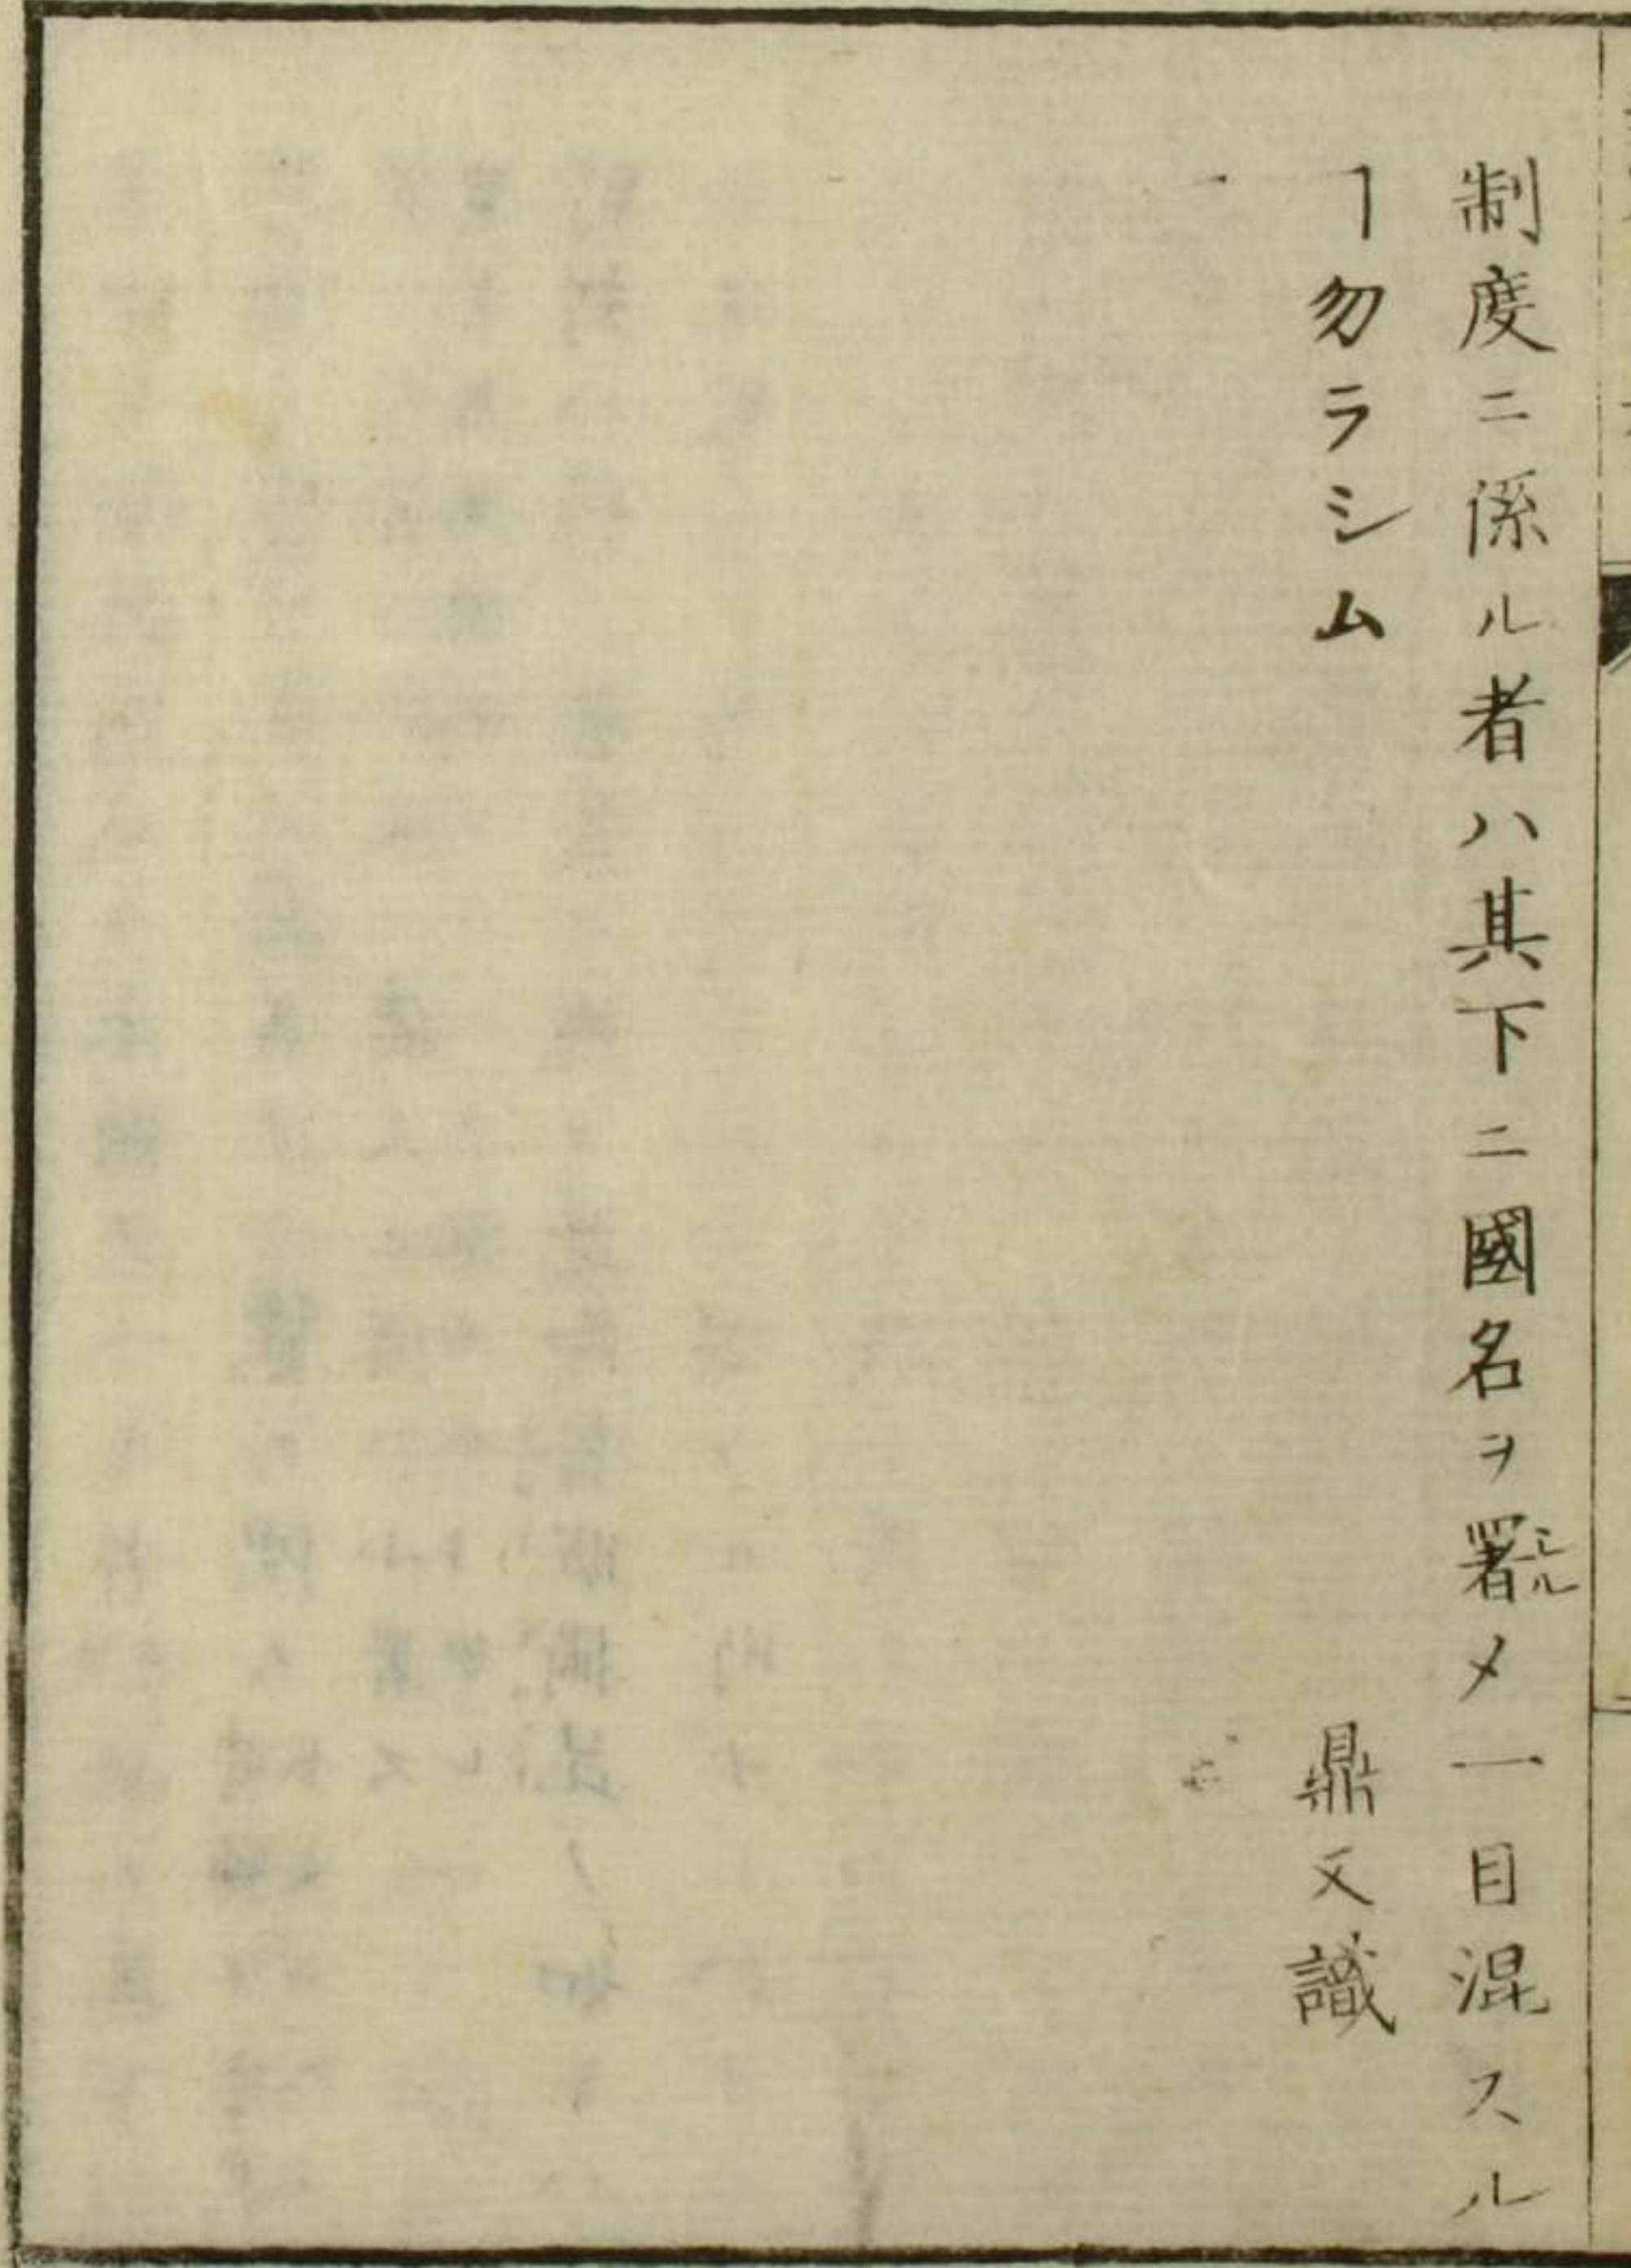 制度ニ係ル者ハ其下ニ國名ヲ署シルメ一目混スル
ヿ勿ラシム
鼎文識